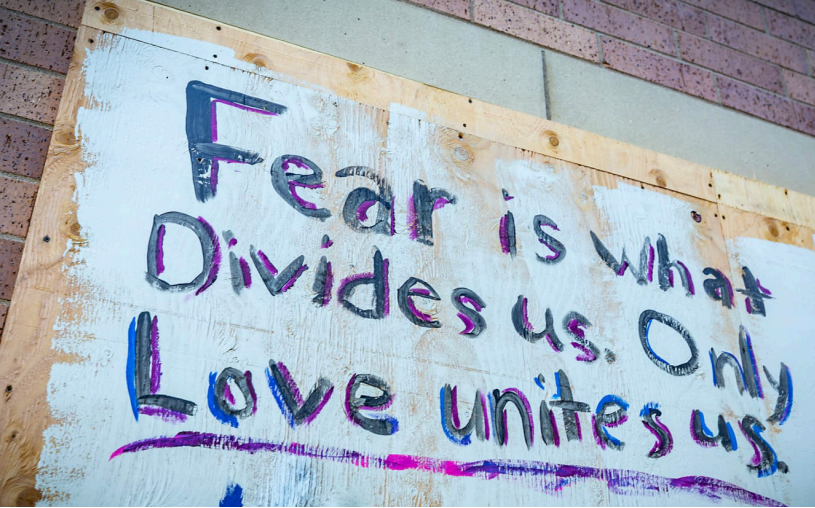 Fear is what
Divides us. Only
Love unites us.